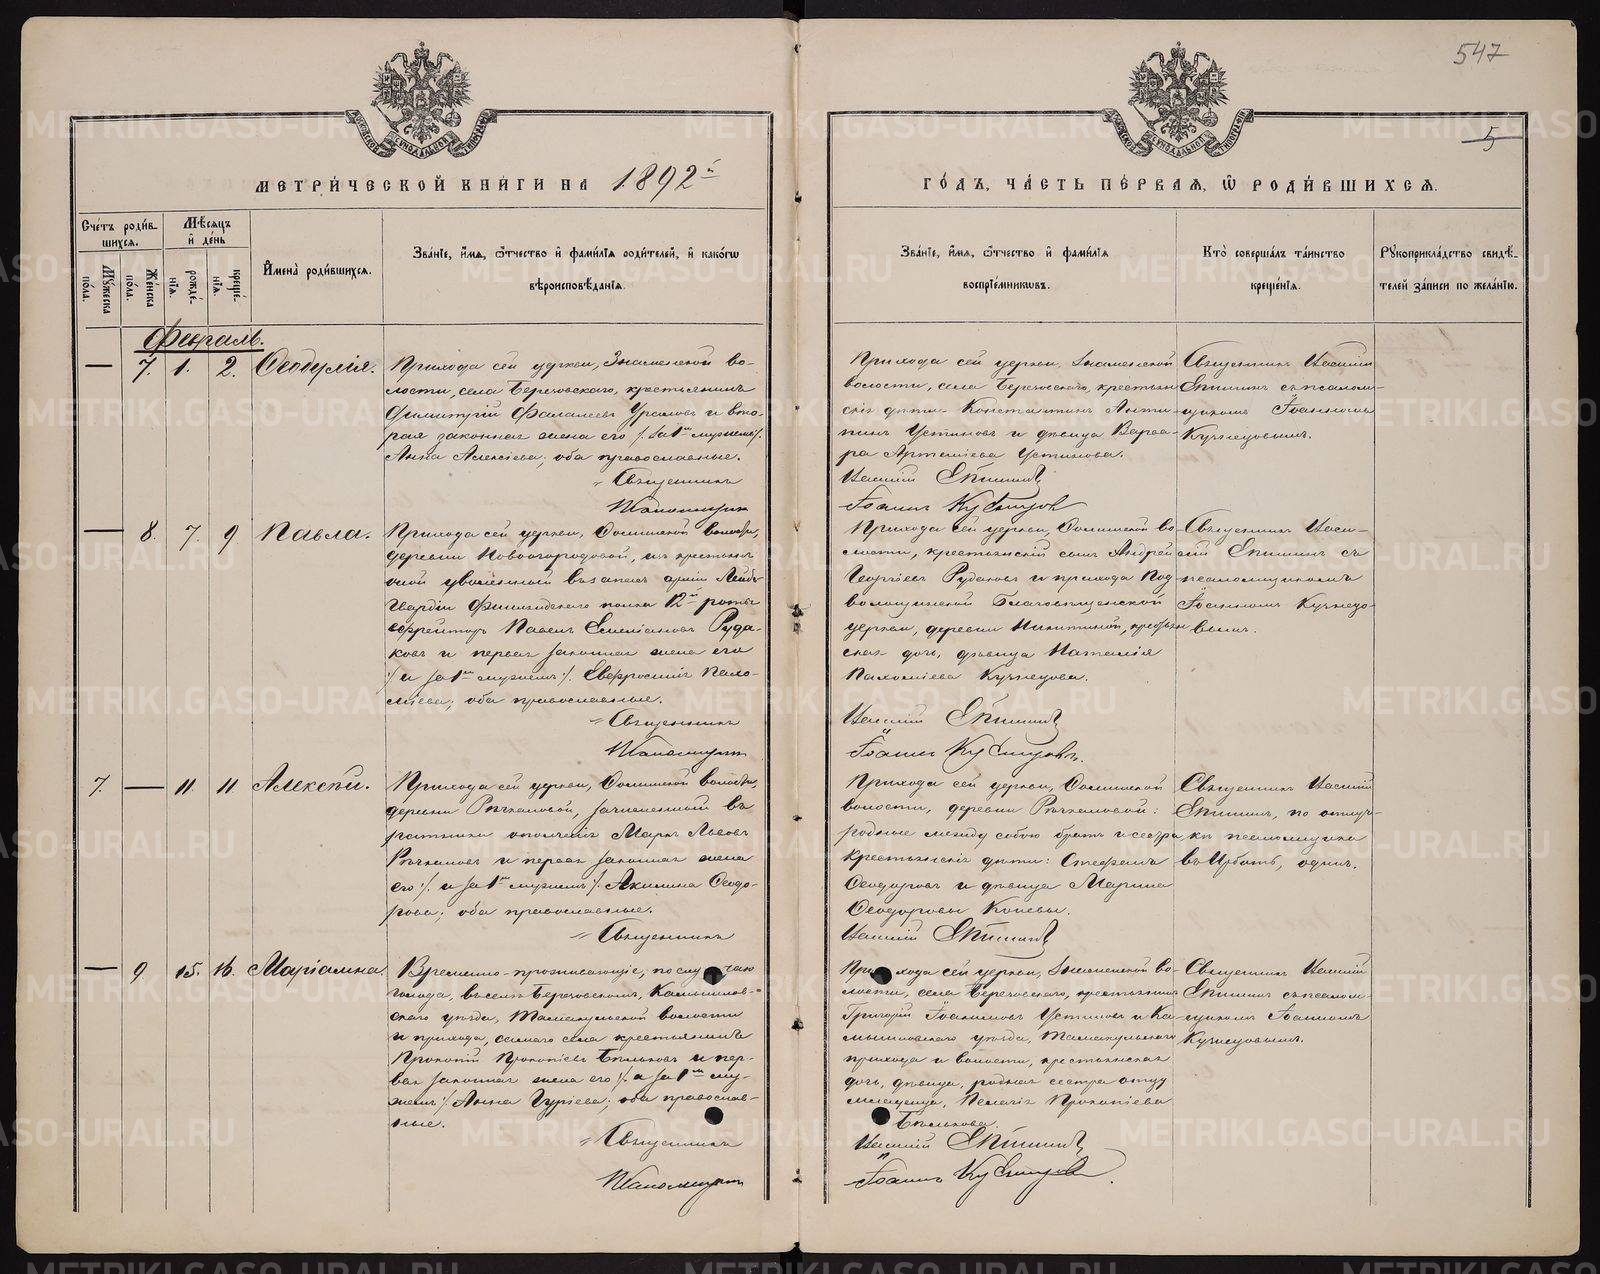 547
5
МЕТРИ́ЧЕСКОЙ КНИ́ГИ НА 1892й
ГО́ДЪ, ЧА́СТЬ ПЕ́РВАЯ, Ѿ РОДИ́ВШИХСѦ.
Сче́тъ роди́в-
шихсѧ.
Мѣ́сѧцъ
и҆ де́нь
Мꙋ́жеска
по́ла.
Же́нска
по́ла.
рожде́-
нїѧ.
креще́-
нїѧ.
И҆мена̀ роди́вшихсѧ.
Зва́нїе, и҆́мѧ, ѻ҆́тчество и҆ фамі́лїѧ роди́телей, и҆ како́гѡ
вѣроисповѣ́данїѧ.
Зва́нїе, и҆́мѧ, ѻ҆́тчество и҆ фамі́лїѧ
воспрїе́мникѡвъ.
Кто̀ соверша́лъ та́инство
креще́нїѧ.
Рꙋкоприкла́дство свидѣ́-
телей за́писи по жела́нїю.
Февраль.
— 7. 1. 2. Ѳеодулія.
Прихода сей церкви, Знаменской во-
лости, села Береговскаго, крестьянинъ
Димитрій Фалалеевъ Устиновъ и вто-
рая законная жена его /: за 1мъ мужемъ:/
Анна Алексіева; оба православные.
Священникъ
Псаломщикъ
Прихода сей церкви, Знаменской
волости, села Береговскаго, крестьян-
скіе дѣти Константинъ Анти-
пинъ Устиновъ и дѣвица Варва-
ра Артеміева Устинова.
Василій Епишинъ
Іоаннъ Кузнецовъ
Священникъ Василій
Епишинъ съ псалом-
щикомъ Іоанномъ
Кузнецовымъ.
— 8. 7. 9. Павла.
Прихода сей церкви, волости,
деревни Новоогородовой, изъ крестьянъ
уволенный въ запасъ арміи Лейбъ-
Гвардіи Финляндскаго полка 12й роты
ефрейторъ Павелъ Емеліановъ Руда-
ковъ и первая законная жена его
/: и за 1мъ мужемъ:/ Евфросинія Пахо-
міева; оба православные.
Священникъ
Псаломщикъ
Прихода сей церкви, во-
лости, крестьянскій сынъ Андрей
Георгіевъ Рудаковъ и прихода Под-
волошинской Благовѣщенской
церкви, деревни Никитиной, крестьян-
ская дочь, дѣвица Наталія
Пахоміева Кузнецова.
Василій Епишинъ
Іоаннъ Кузнецовъ.
Священникъ Васи-
лій Епишинъ съ
псаломщикомъ
Іоанномъ Кузнецо-
вымъ.
7. — 11. 11 Алексѣй.
Прихода сей церкви, волости,
деревни Рѣчкаловой, зачисленный въ
ратники ополченія Маркъ Львовъ
Рѣчкаловъ и первая законная жена
его /: и за 1мъ мужемъ:/ Акилина Ѳеодо-
рова; оба православные.
Священникъ
Прихода сей церкви,
волости, деревни Рѣчкаловой:
родные между собою братъ и сестра,
крестьянскіе дѣти: Стефанъ
Ѳеодоровъ и дѣвица Марина
Ѳеодоровы Коневы.
Василій Епишинъ
Священникъ Василій
Епишинъ, по отлуч-
кѣ псаломщика
въ Ирбитъ, одинъ.
— 9. 15. 16. Маріамна.
Временно-проживающіе, по случаю
голода, въ селѣ Береговскомъ, Камышлов-
скаго уѣзда, Тамакульской волости
и прихода, самаго села крестьянинъ
Прокопій Прокопіевъ Бѣльковъ и пер-
вая законная жена его /: и за 1мъ му-
жемъ:/ Анна Гуріева; оба православ-
ные.
Священникъ
Псаломщикъ
Прихода сей церкви, Знаменской во-
лости, села Береговскаго, крестьянинъ
Григорій Іоакимовъ Устиновъ и Ка-
мышловскаго уѣзда, Тамакульскаго
прихода и волости, крестьянская
дочь, дѣвица, родная сестра отцу
младенца, Пелагія Прокопіева
Бѣлькова.
Василій Епишинъ
Іоаннъ Кузнецовъ.
Священникъ Василій
Епишинъ съ псалом-
щикомъ Іоанномъ
Кузнецовымъ.
METRIKI.GASO-URAL.RU